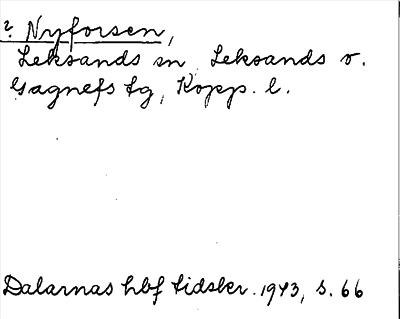 ? Nyforsen,
Leksands sn, Leksands o.
Gagnefs tg, Kopp. l.
Dalarnas hbf tidskr. 1943, s. 66